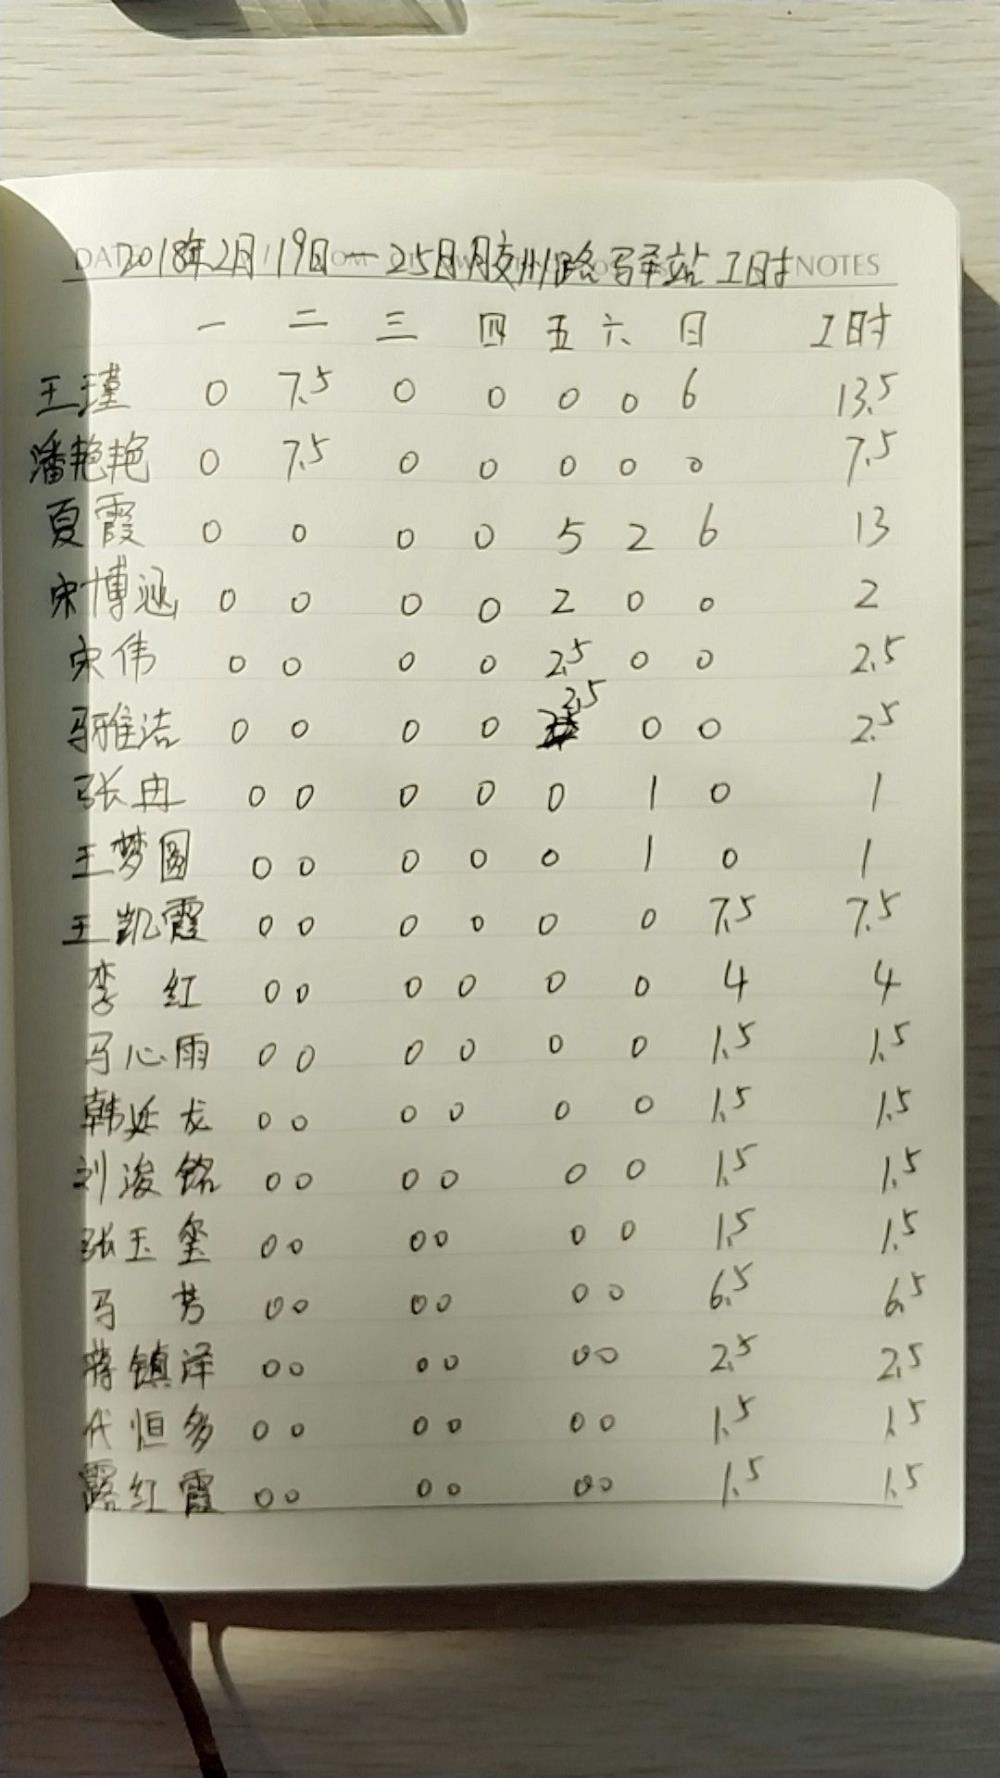 2018年2月19日一25日胶州路驿站工时
NOTES
一 二 三 四 五 六 日 工时
王瑾 0 7.5 0 0 0 0 6 13.5
潘艳艳 0 7.5 0 0 0 0 0 7.5
夏霞 0 0 0 0 5 2 6 13
宋博涵 0 0 0 0 2 0 0 2
宋伟 0 0 0 0 2.5 0 0 2.5
马雅洁 0 0 0 0 2.5 0 0 2.5
张冉 0 0 0 0 0 1 0 1
王梦圆 0 0 0 0 0 1 0 1
王凯霞 0 0 0 0 0 0 7.5 7.5
李红 0 0 0 0 0 0 4 4
马心雨 0 0 0 0 0 0 1.5 1.5
韩延龙 0 0 0 0 0 0 1.5 1.5
刘浚铭 0 0 0 0 0 0 1.5 1.5
张玉玺 0 0 0 0 0 0 1.5 1.5
马芳 0 0 0 0 0 0 6.5 6.5
蒋镇泽 0 0 0 0 0 0 2.5 2.5
代恒多 0 0 0 0 0 0 1.5 1.5
露红霞 0 0 0 0 0 0 1.5 1.5